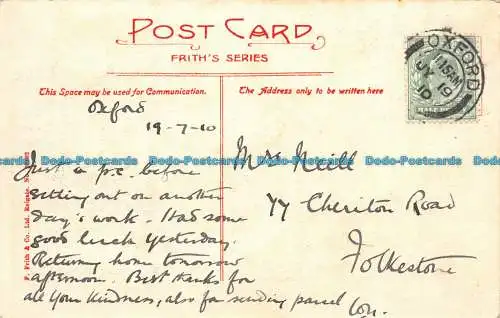 POST CARD
FRITH'S SERIES
This Space may be used for Communication.
The Address only to be written here
OXFORD
11.15AM
JY 19
10
Oxford
19-7-10
Just a p.c. before
setting out on another
day's work. Had some
good luck yesterday.
Returning home tomorrow
afternoon. Best thanks for
all your kindness, also for sending parcel
Con.
Mrs Neill
77 Cheriton Road
Folkestone
F. Frith & Co., Ltd. Reigate.
Dodo-Postcards Dodo-Postcards Dodo-Postcards Dodo-Postcards Dodo-Postcards